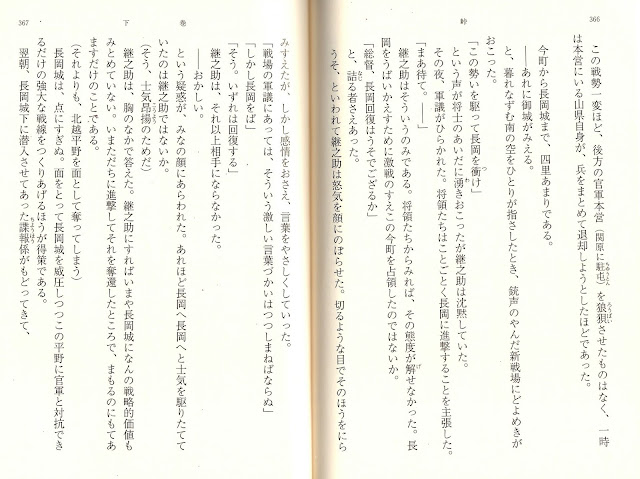 366
峠
この戦勢一変ほど、後方の官軍本営（関原に駐屯）を狼狽させたものはなく、一時
は本営にいる山県自身が、兵をまとめて退却しようとしたほどであった。
今町から長岡城まで、四里あまりである。
――あれに御城がみえる。
と、暮れなずむ南の空をひとりが指さしたとき、銃声のやんだ新戦場にどよめきが
おこった。
「この勢いを駆って長岡を衝け」
という声が将士のあいだに湧きおこったが継之助は沈黙していた。
その夜、軍議がひらかれた。将領たちはことごとく長岡に進撃することを主張した。
「まあ待て。――」
継之助はそういうのみである。将領たちからみれば、その態度が解せなかった。長
岡をうばいかえすために激戦のすえこの今町を占領したのではないか。
「総督、長岡回復はうそでござるか」
と、詰る者さえあった。
うそ、といわれて継之助は怒気を顔にのぼらせた。切るような目でそのほうをにら
367
下巻
みすえたが、しかし感情をおさえ、言葉をやさしくしていった。
「戦場の軍議にあっては、そういう激しい言葉づかいはつつしまねばならぬ」
「しかし長岡をば」
「そう。いずれは回復する」
継之助は、それ以上相手にならなかった。
――おかしい。
という疑惑が、みなの顔にあらわれた。あれほど長岡へ長岡へと士気を駆りたてて
いたのは継之助ではないか。
（そう、士気昂揚のためだ）
継之助は、胸のなかで答えた。継之助にすればいまや長岡城になんの戦略的価値も
みとめていない。いまただちに進撃してそれを奪還したところで、まもるのにもてあ
ますだけのことである。
（それよりも、北越平野を面として奪ってしまう）
長岡城は、点にすぎぬ。面をとって長岡城を威圧しつつこの平野に官軍と対抗でき
るだけの強大な戦線をつくりあげるほうが得策である。
翌朝、長岡城下に潜入させてあった諜報係がもどってきて、